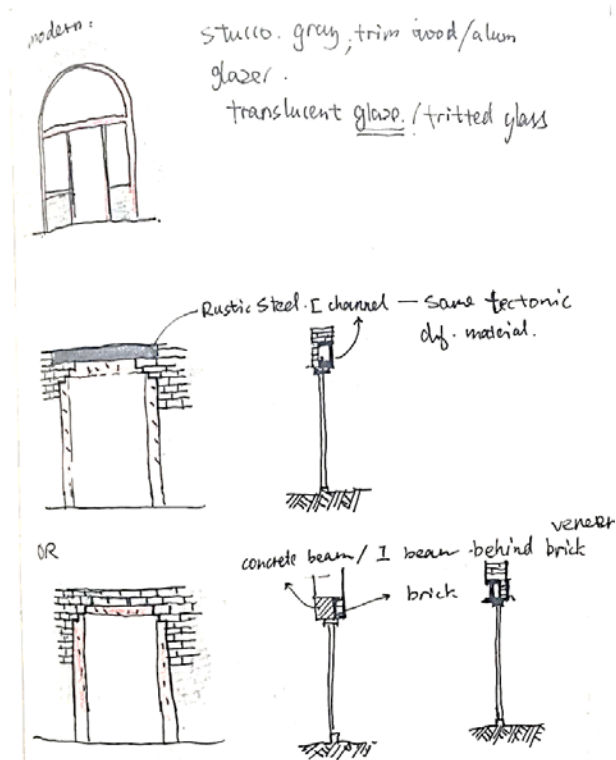 modern:
stucco. gray, trim wood/alum
glazer.
translucent glaze. / fritted glass
Rustic Steel. I channel — same tectonic
dif. material.
OR
concrete beam / I beam behind brick
veneer
brick